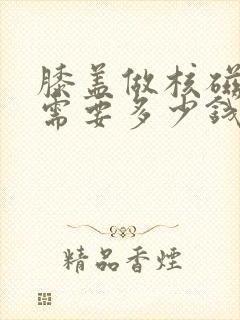 膝盖做核磁
需要多少钱
精品香煙